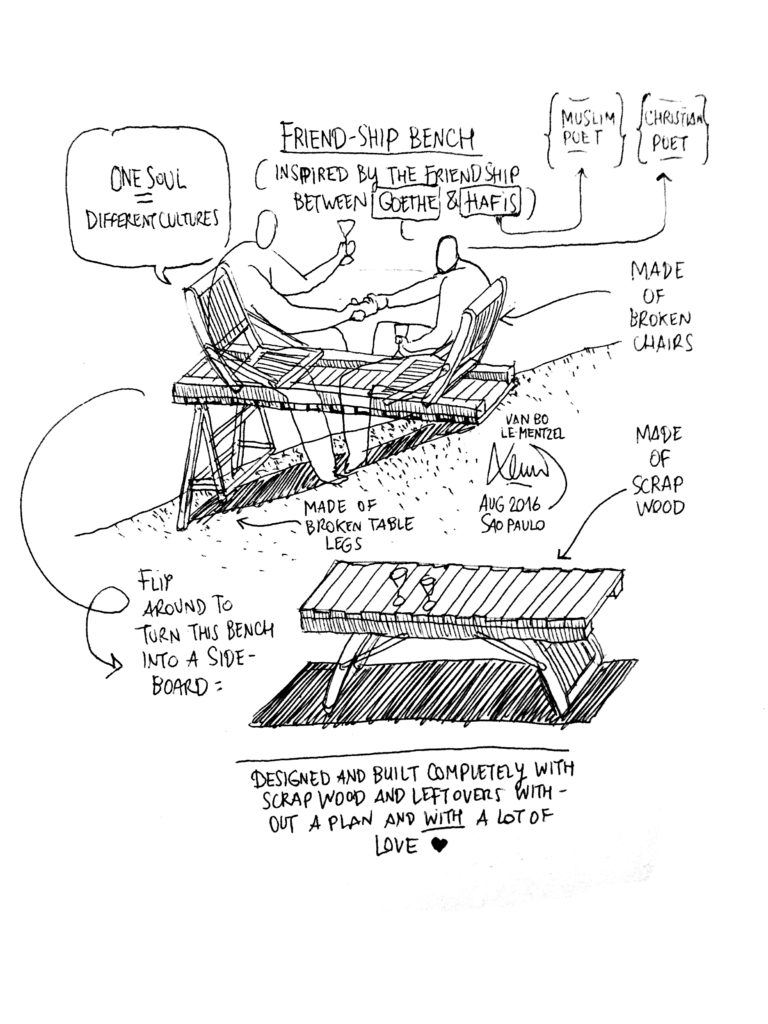 FRIEND-SHIP BENCH
(INSPIRED BY THE FRIENDSHIP
BETWEEN GOETHE & HAFIS)
{MUSLIM
POET}
{CHRISTIAN
POET}
ONE SOUL
=
DIFFERENT CULTURES
MADE
OF
BROKEN
CHAIRS
VAN BO
LE-MENTZEL
AUG 2016
SAO PAULO
MADE
OF
SCRAP
WOOD
MADE OF
BROKEN TABLE
LEGS
FLIP
AROUND TO
TURN THIS BENCH
INTO A SIDE-
BOARD:
DESIGNED AND BUILT COMPLETELY WITH
SCRAP WOOD AND LEFTOVERS WITH-
OUT A PLAN AND WITH A LOT OF
LOVE ♥